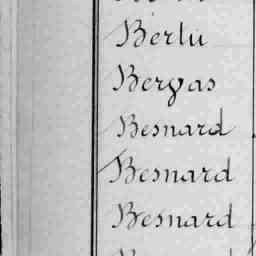 Bertu
Bergas
Besnard
Besnard
Besnard